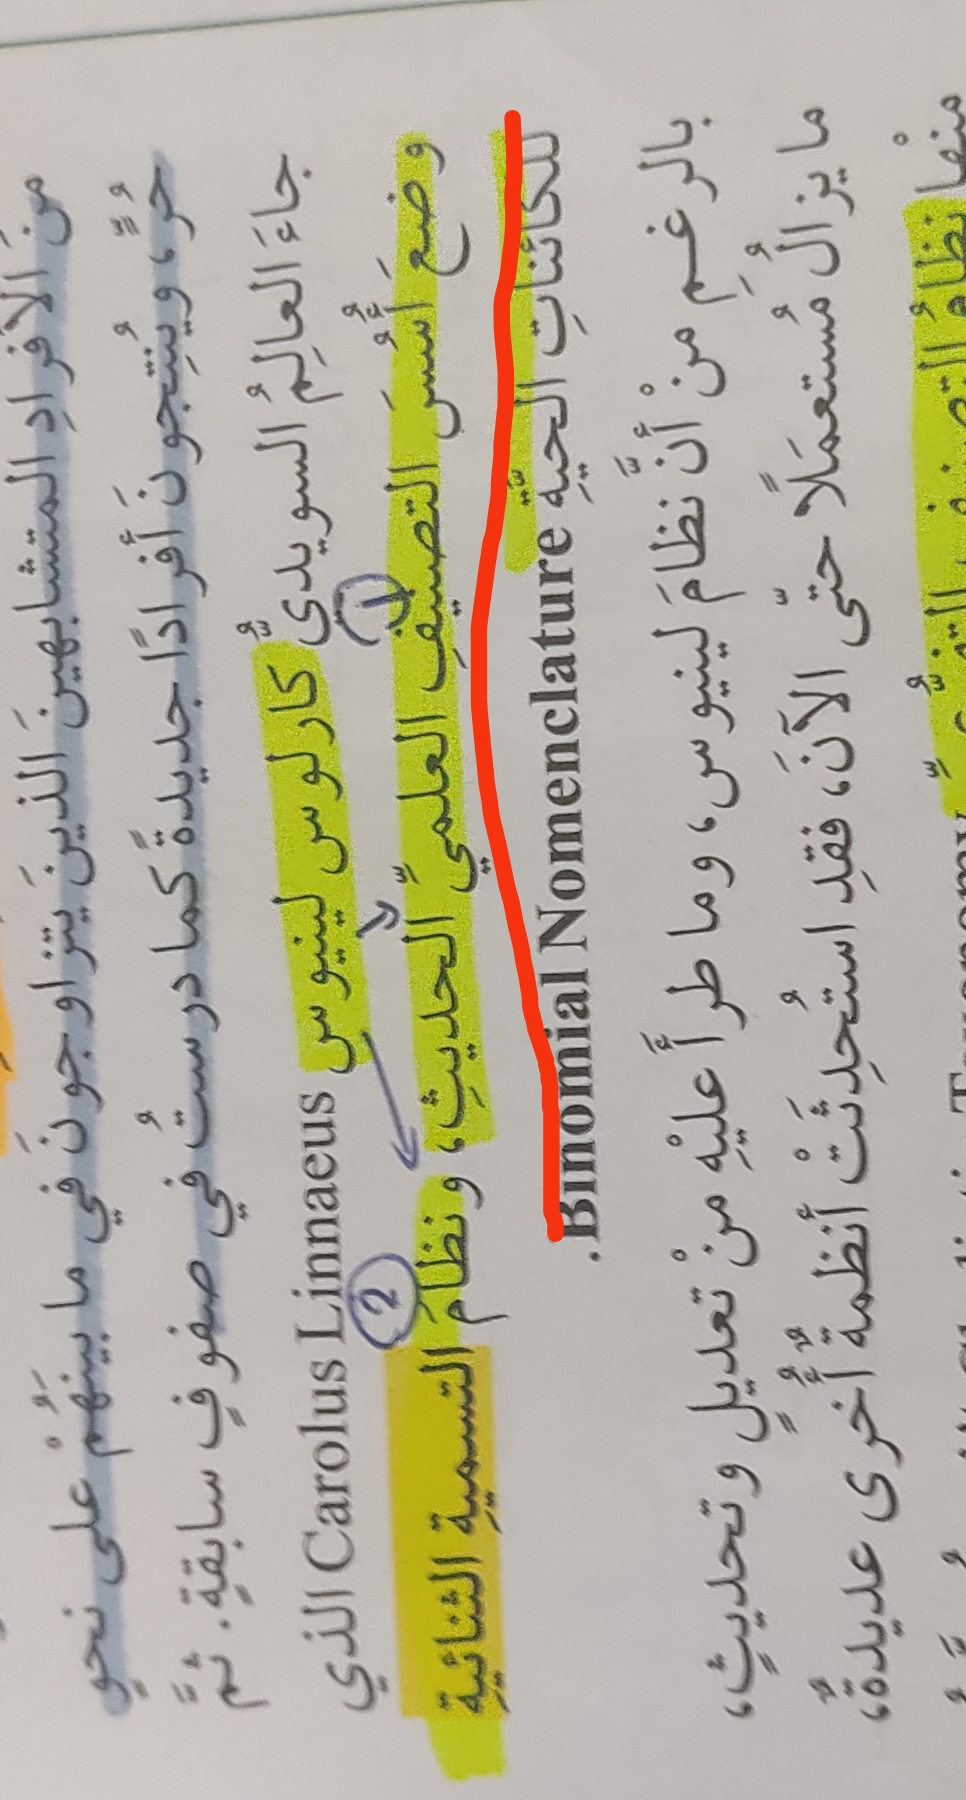 منَ الأفرادِ المتشابهينَ الذينَ يتزاوجونَ في ما بينَهُمْ على نحوٍ
حرٍّ، ويُنتِجونَ أفرادًا جديدةً كما درستُ في صفوفٍ سابقةٍ. ثمَّ
جاءَ العالِمُ السويديُّ كارلوس لينيوس Carolus Linnaeus الذي
وضعَ أُسُسَ التصنيفِ العلميِّ الحديثِ، ونظامَ التسميةِ الثنائيةِ
1
2
للكائناتِ الحيّةِ Binomial Nomenclature.
بالرغمِ منْ أنَّ نظامَ لينيوس، وما طرأَ عليْهِ منْ تعديلٍ وتحديثٍ،
ما يزالُ مُستعمَلًا حتّى الآنَ، فقدِ استُحدِثَتْ أنظمةٌ أُخرى عديدةٌ،
منْها نظامُ التصنيفِ